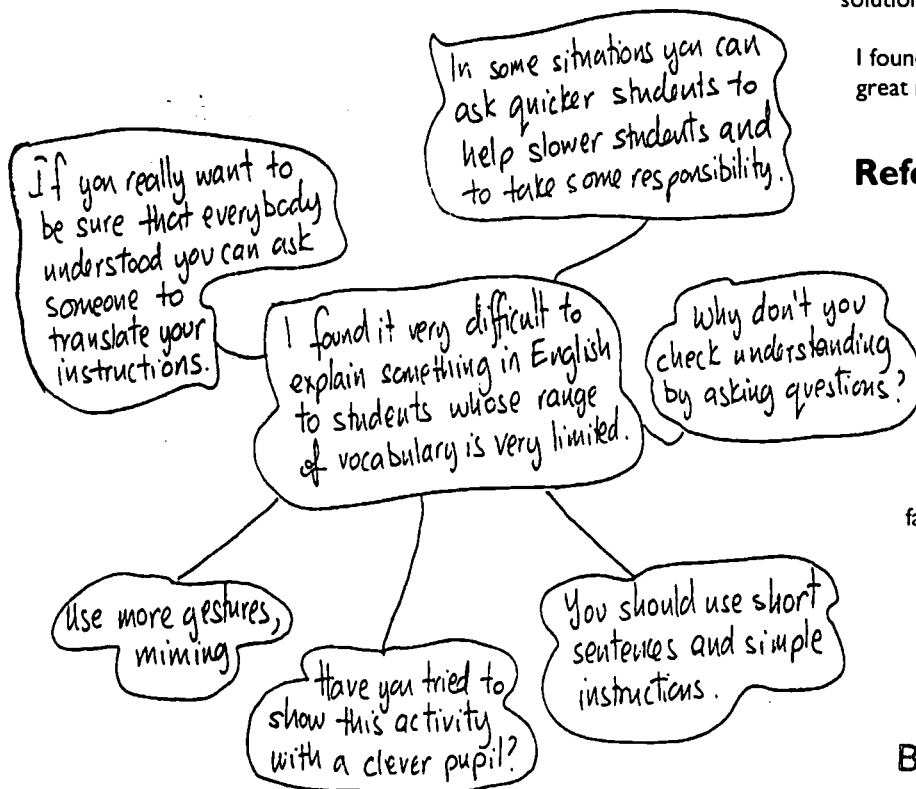 solution
I foun
great
Refe
In some situations you can
ask quicker students to
help slower students and
to take some responsibility.
If you really want to
be sure that everybody
understood you can ask
someone to
translate your
instructions.
I found it very difficult to
explain something in English
to students whose range
of vocabulary is very limited.
Why don't you
check understanding
by asking questions?
fa
Use more gestures,
miming
Have you tried to
show this activity
with a clever pupil?
You should use short
sentences and simple
instructions.
B